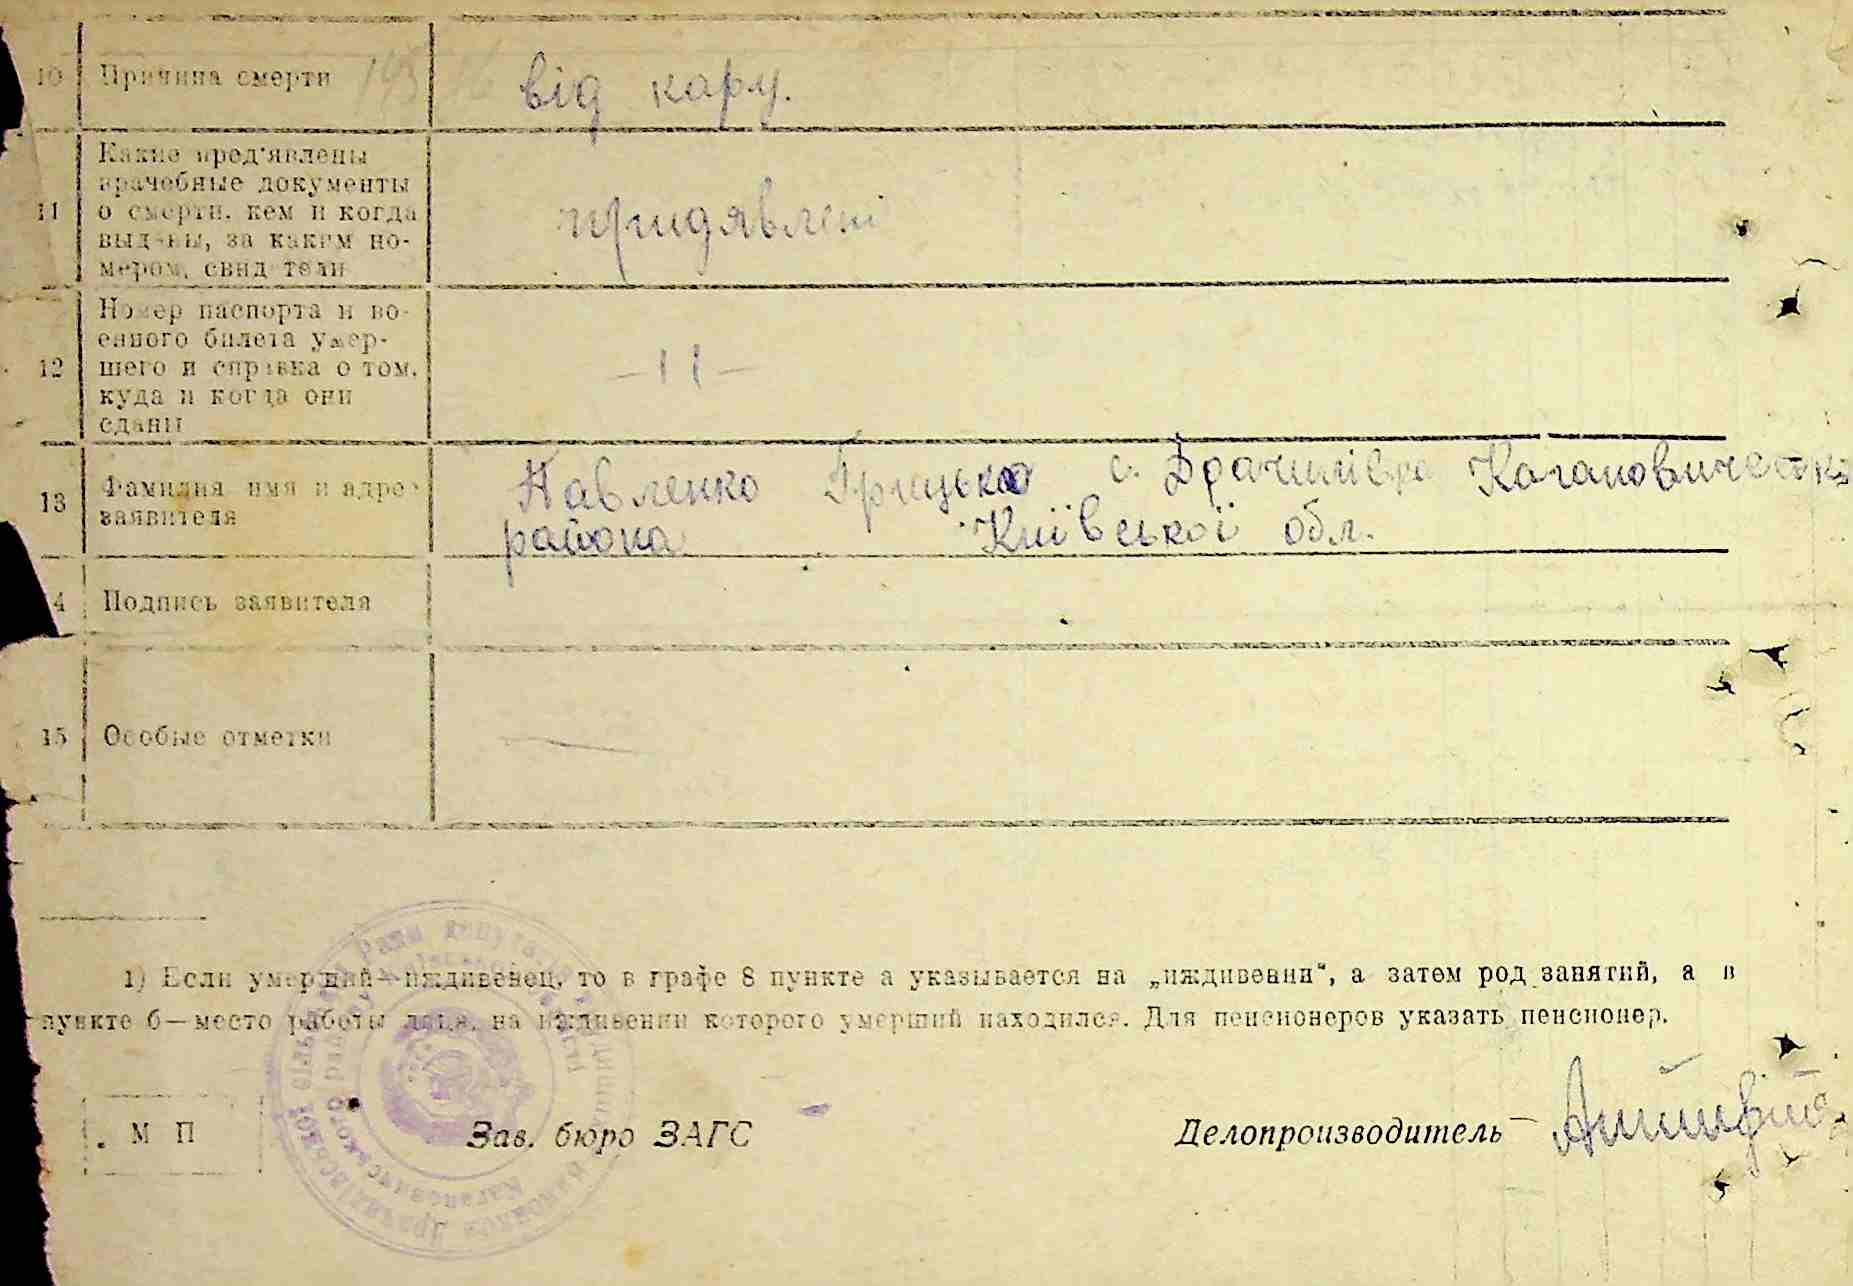 10 Причина смерти від кару.
11 Какие пред'явлены
врачебные документы
о смерти, кем и когда
выданы, за каким но-
мером, свидетели
придявлені
12 Номер паспорта и во-
енного билета умер-
шего и справка о том,
куда и когда они
сданы
— 11 —
13 Фамилия имя и адрес
заявителя
Павленко Грицько с. Драчилівка Кагановичеськ
района Київської обл.
4 Подпись заявителя
15 Особые отметки —
1) Если умерший—иждивенец, то в графе 8 пункте а указывается на „иждивении", а затем род занятий, а в
пункте б—место работы лица, на иждивении которого умерший находился. Для пенсионеров указать пенсионер.
М П Зав. бюро ЗАГС Делопроизводитель